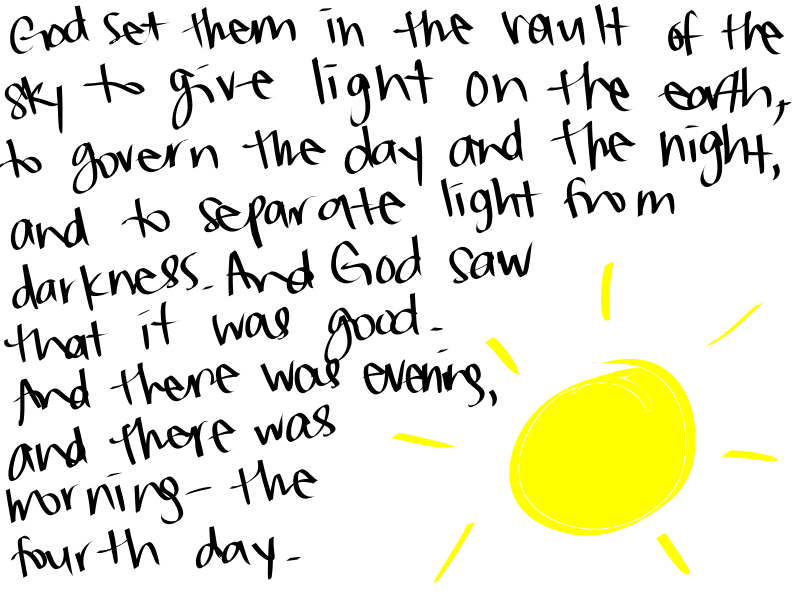 God set them in the vault of the
sky to give light on the earth,
to govern the day and the night,
and to separate light from
darkness. And God saw
that it was good.
And there was evening,
and there was
morning- the
fourth day.